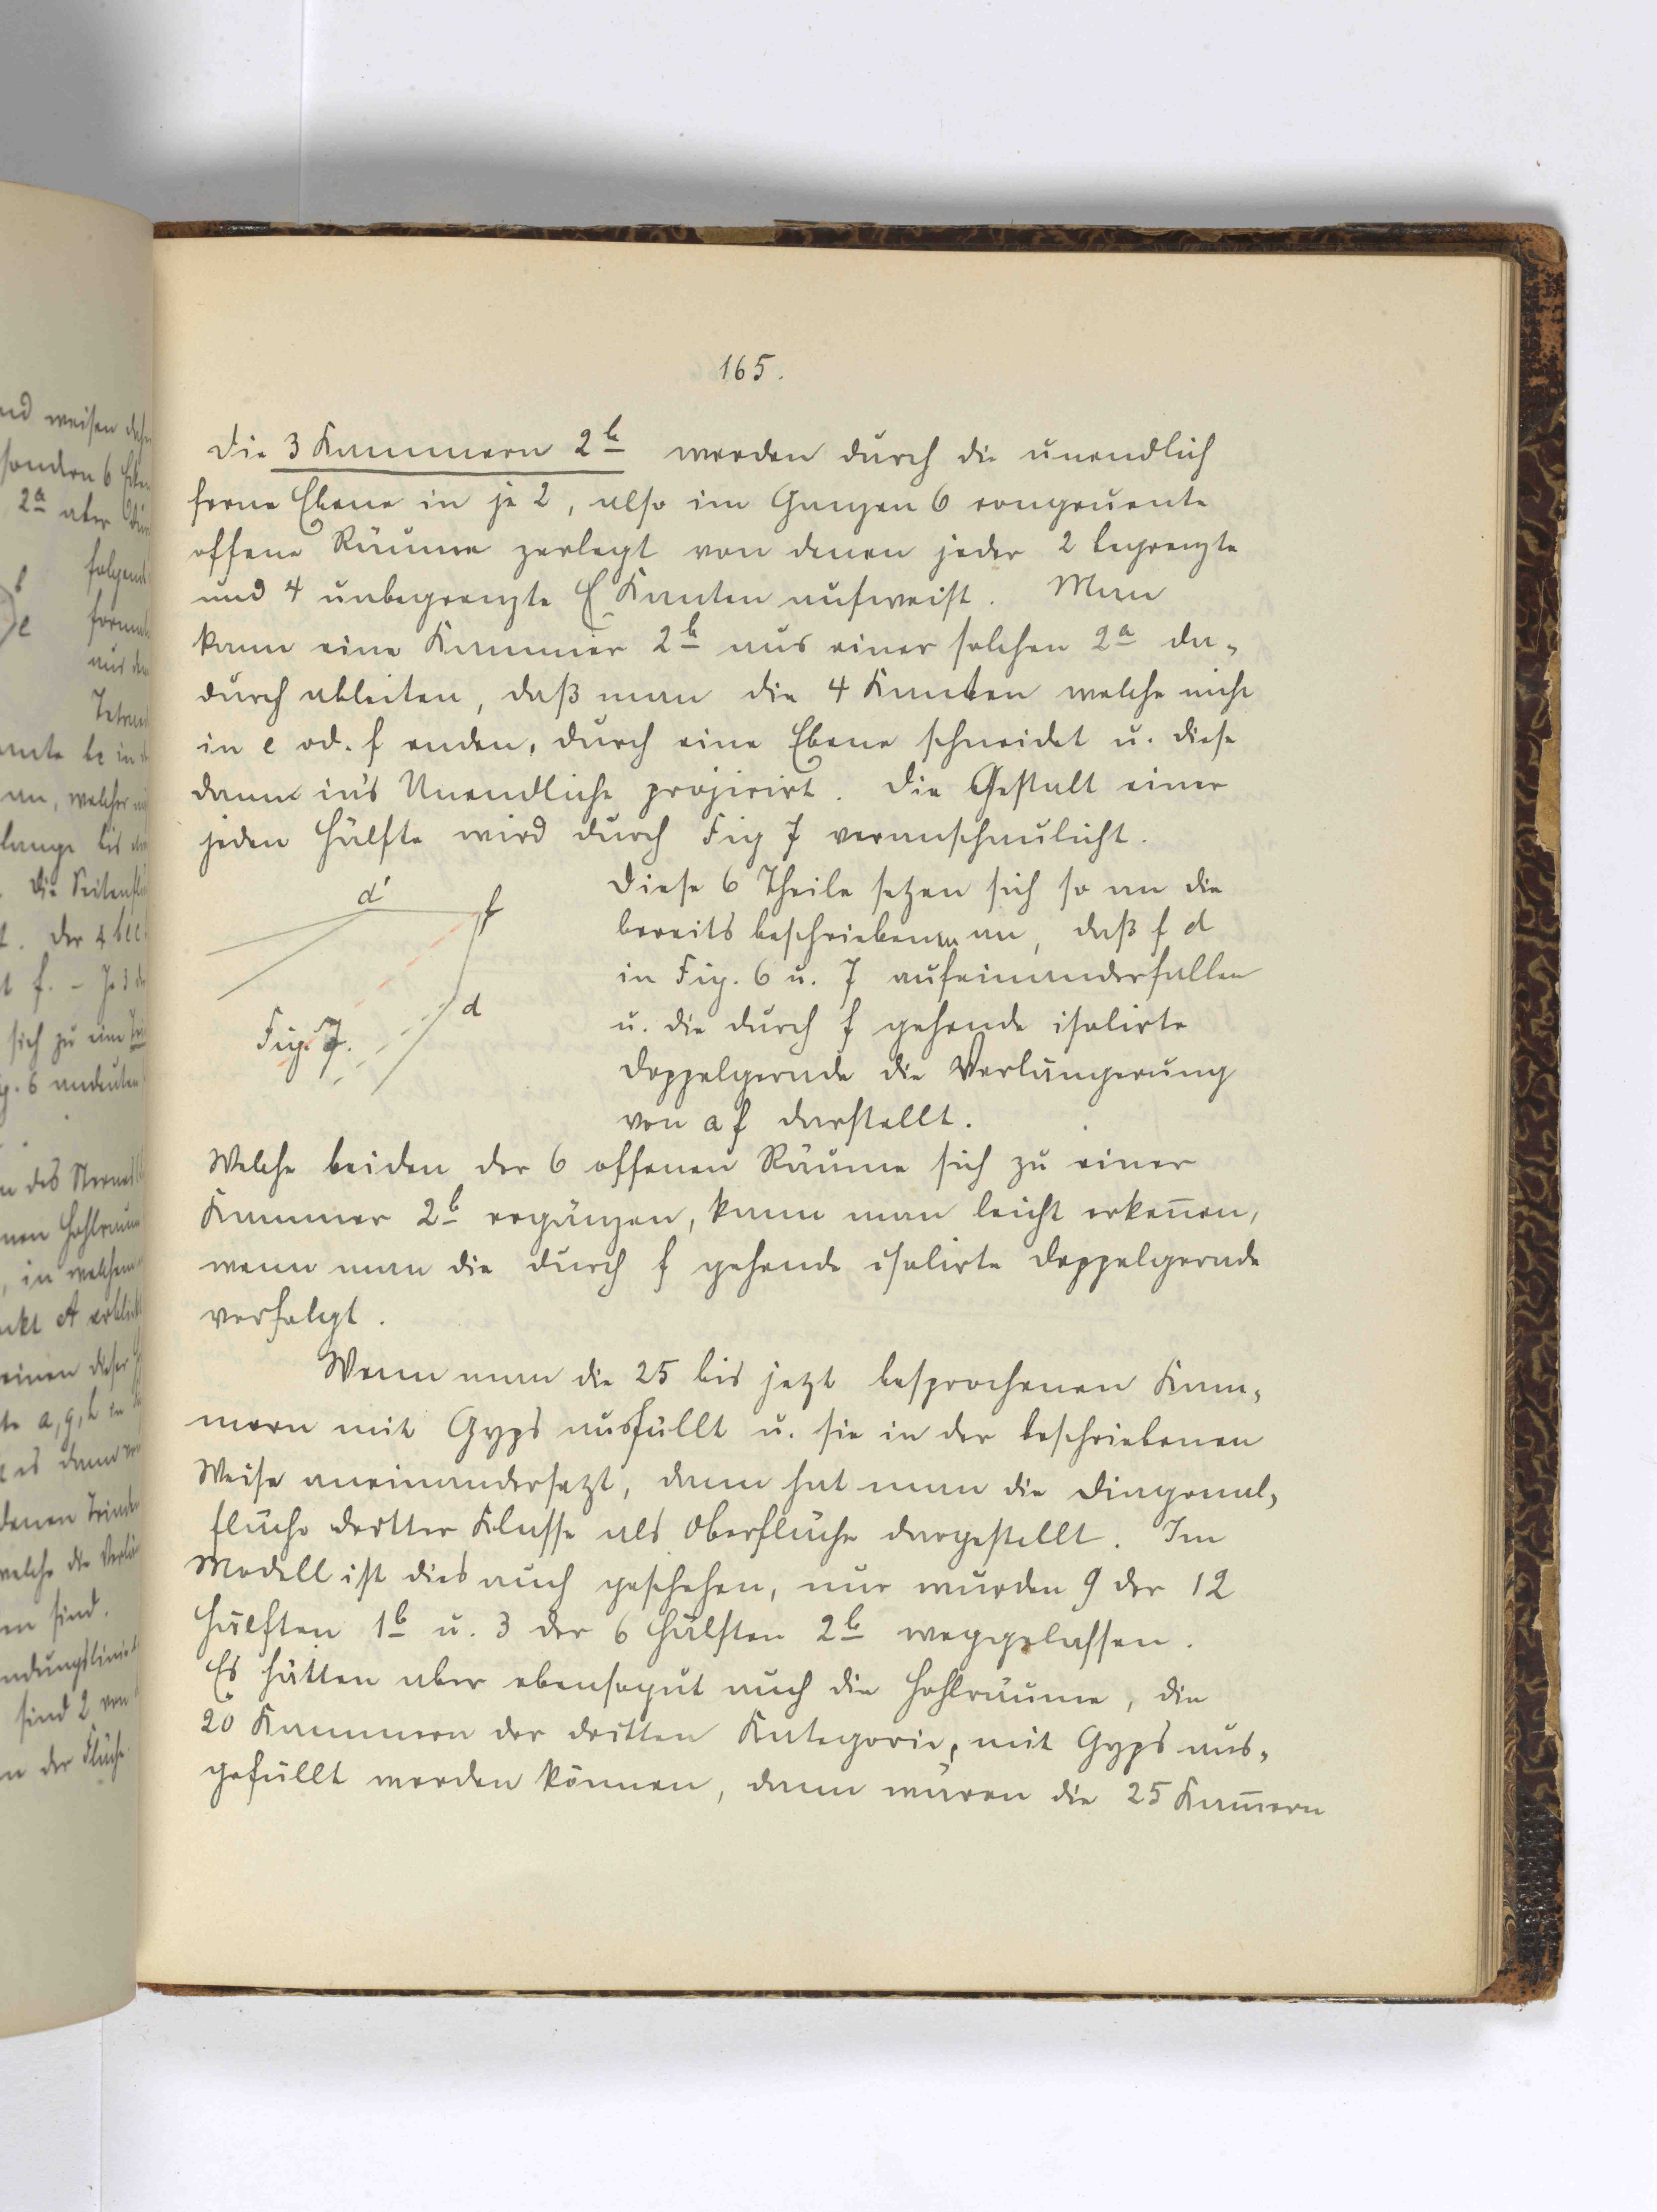 165.
Die 3 Kammern 2b werden durch die unendlich
ferne Ebene in je 2, also im Ganzen 6 congruente
offene Räume zerlegt von denen jeder 2 begrenzte
und 4 unbegrenzte Kanten aufweist. Man
kann eine Kammer 2b aus einer solchen 2a da-
durch ableiten, daß man die 4 Kanten welche nicht
in e od. f enden, durch eine Ebene schneidet u. diese
dann in's Unendliche projicirt. Die Gestalt einer
jeden Hälfte wird durch Fig 7 veranschaulicht.
d'
f
d
Fig. 7.
Diese 6 Theile setzen sich so an die
bereits beschriebenen an, daß f d
in Fig. 6 u. 7 aufeinanderfallen
u. die durch f gehende isolirte
Doppelgerade die Verlängerung
von a f darstellt.
Welche beiden der 6 offenen Räume sich zu einer
Kammer 2b ergänzen, kann man leicht erkeñen,
wenn man die durch f gehende isolirte Doppelgerade
verfolgt.
Wenn man die 25 bis jetzt besprochenen Kam-
mern mit Gyps ausfüllt u. sie in der beschriebenen
Weise aneinandersetzt, dann hat man die Diagonal-
fläche dritter Klasse als Oberfläche dargestellt. Im
Modell ist dies auch geschehen, nur wurden 9 der 12
Hälften 1b u. 3 der 6 Hälften 2b weggelassen.
Es hätten aber ebensogut auch die Hohlräume, die
20 Kammern der dritten Kategorie, mit Gyps aus-
gefüllt werden können, dann wären die 25 Kam̄ern